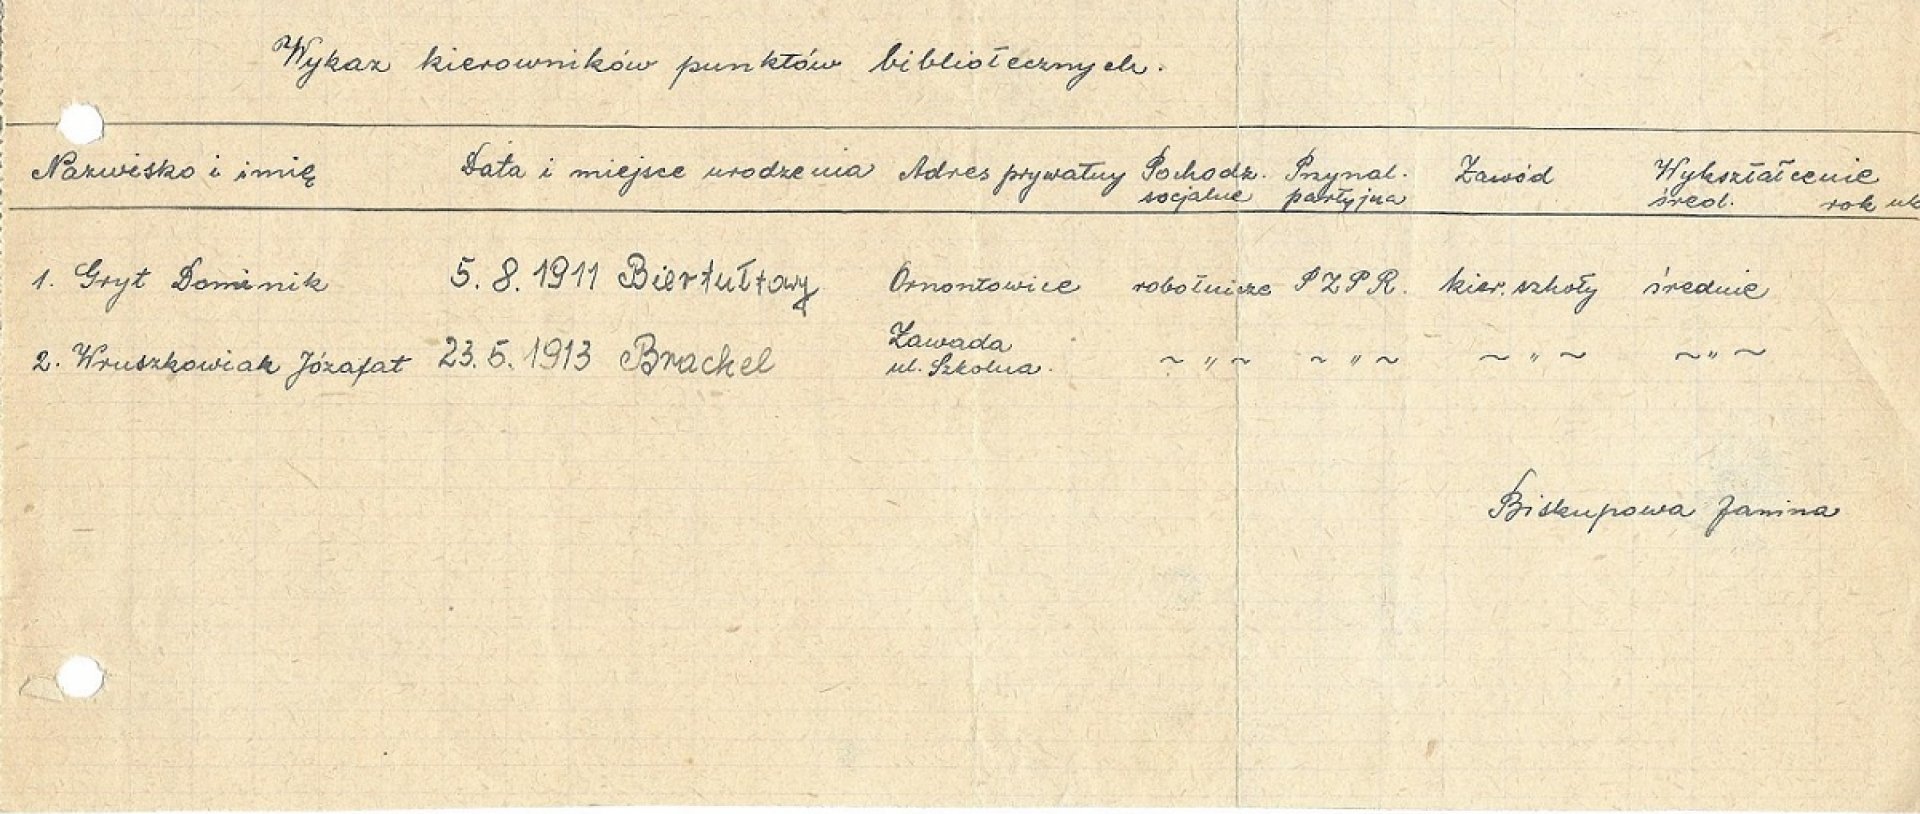 Wykaz kierowników punktów bibliotecznych.
Nazwisko i imię Data i miejsce urodzenia Adres prywatny Pochodz. socjalne Przynal. partyjna Zawód Wykształcenie śred. rok uk
1. Gryt Dominik 5.8.1911 Biertułtowy Ornontowice robotnicze PZPR. kier. szkoły średnie
2. Wruszkowiak Józafat 23.5.1913 Brackel Zawada ul. Szkolna. ~ " ~ ~ " ~ ~ " ~ ~ " ~
Biskupowa Janina